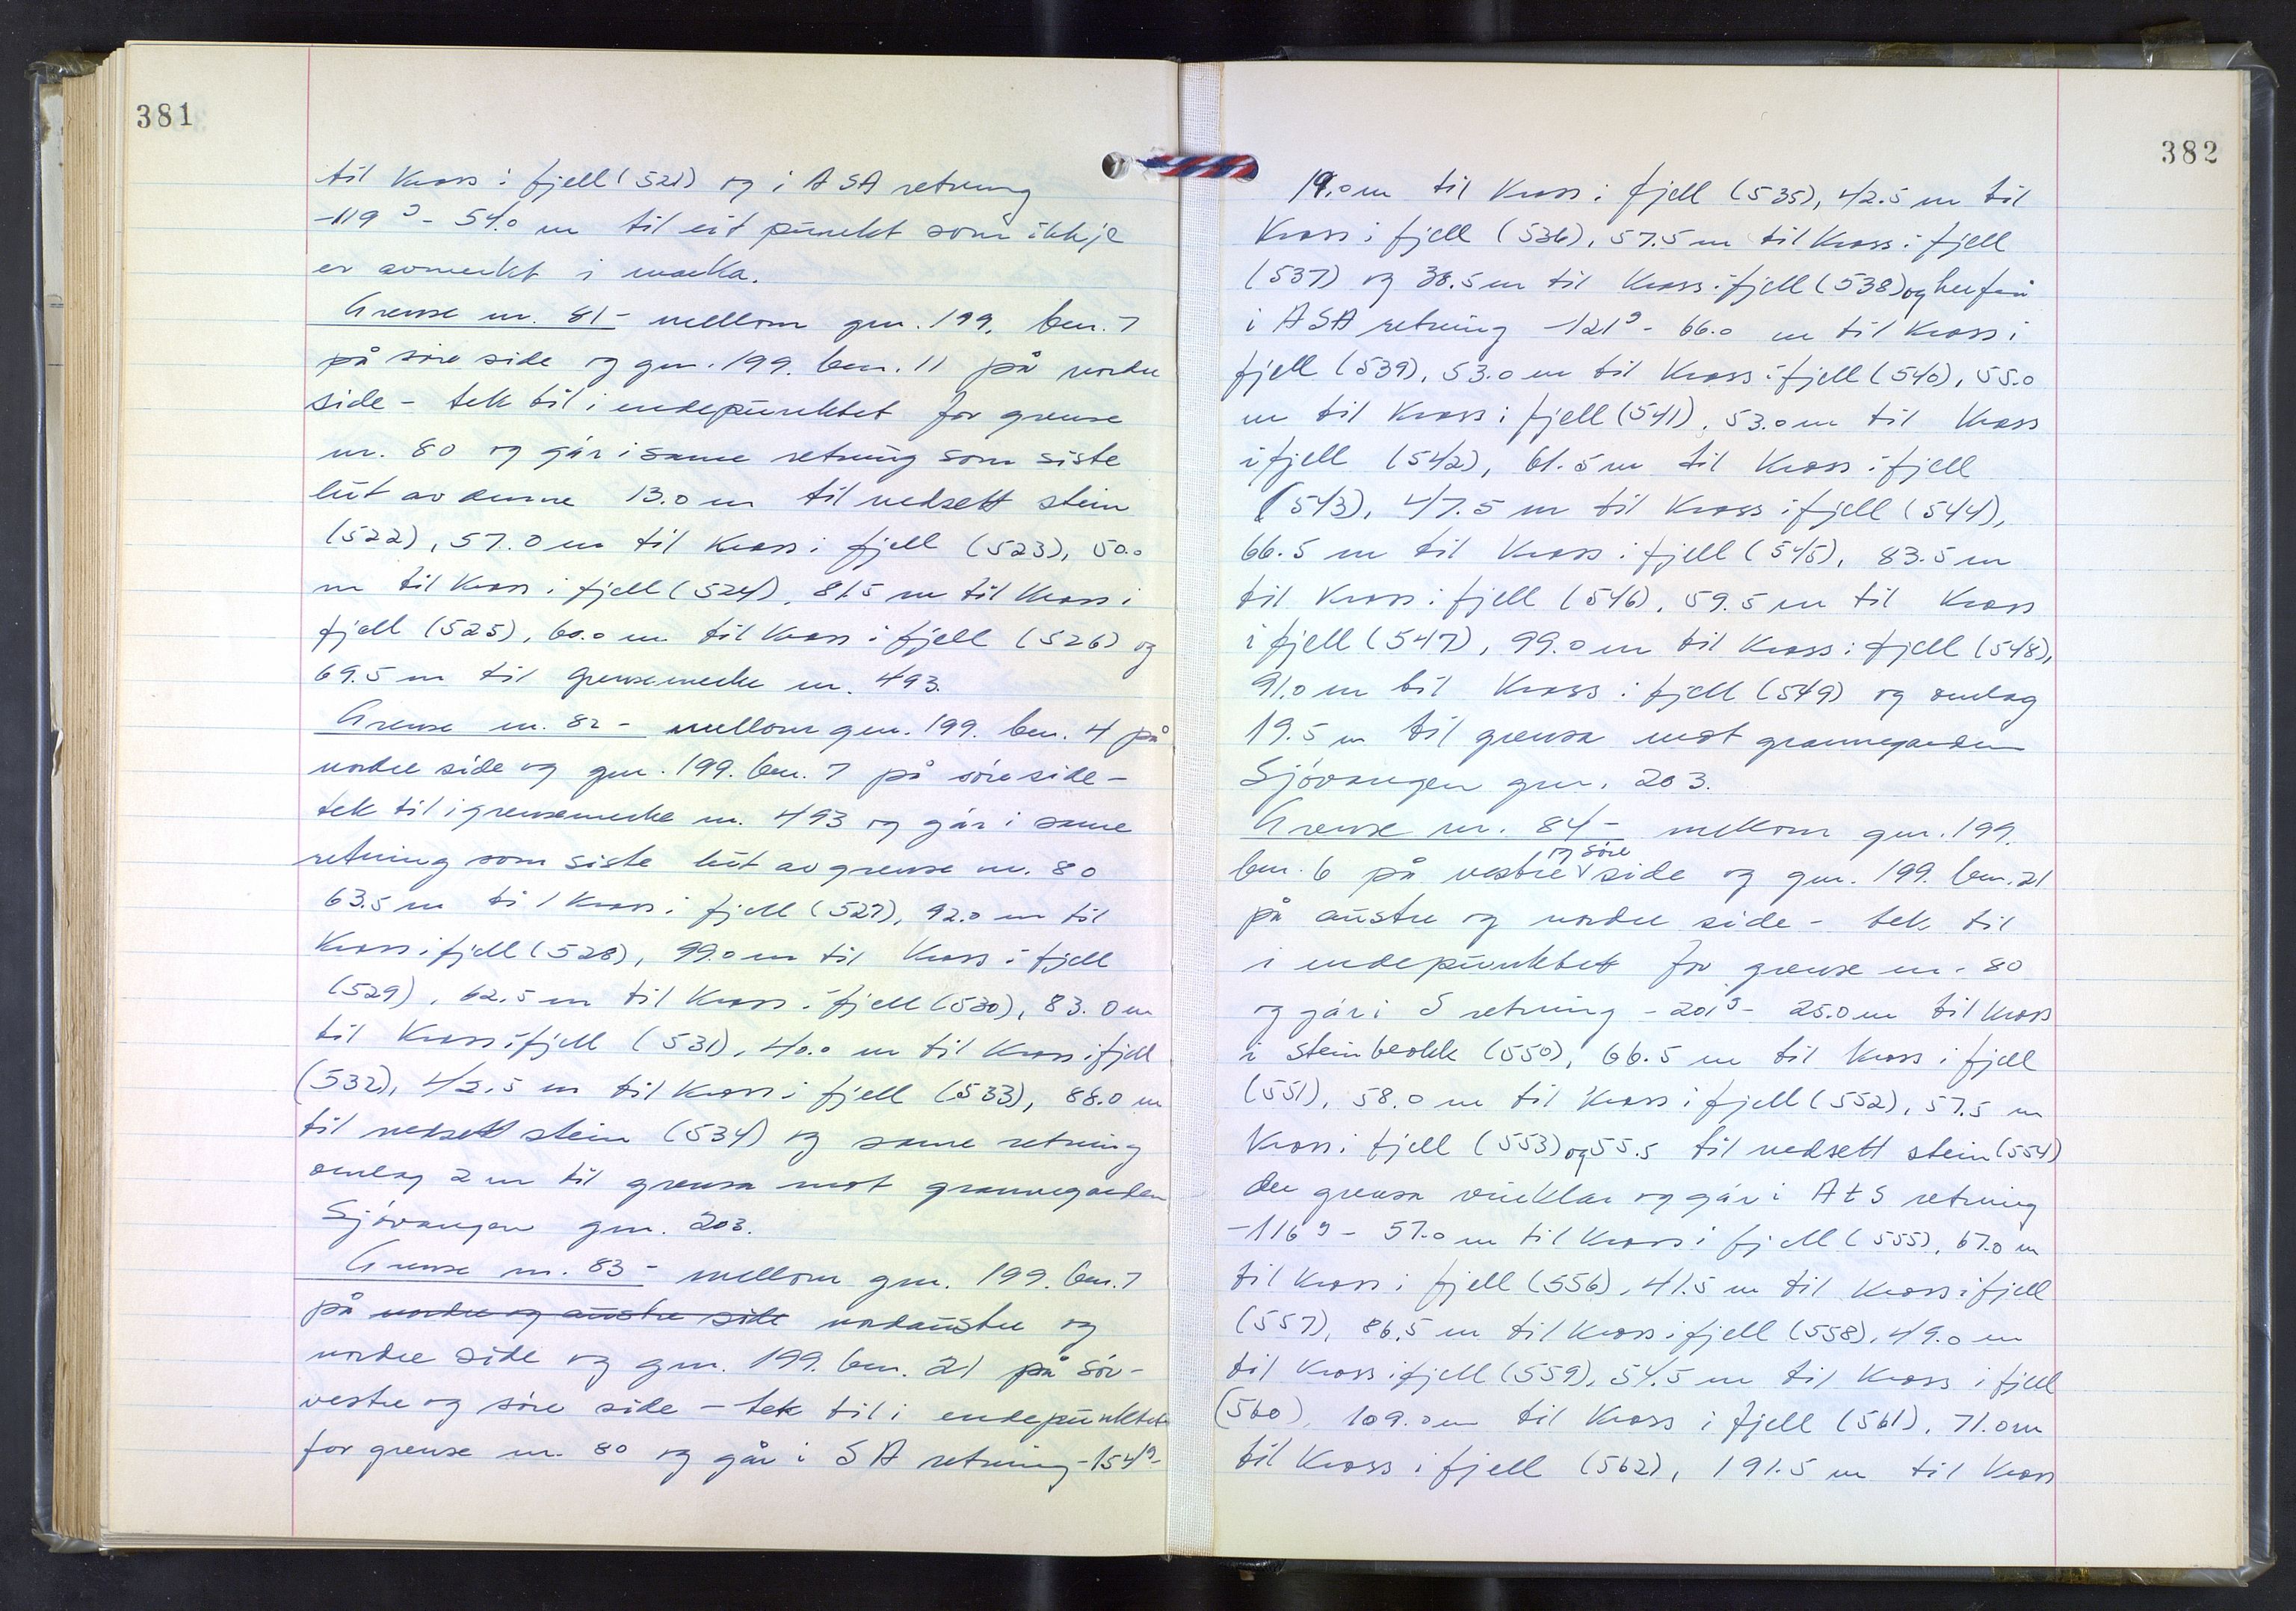 381
til kross i fjell (521) og i ASA retning
-119 g - 54.0 m til eit punkt som ikkje
er avmerkt i marka.
Grense nr. 81 - mellom gnr. 199. bnr. 7
på søre side og gnr. 199. bnr. 11 på nordre
side - tek til i endepunktet for grense
nr. 80 og går i same retning som siste
leit av denne 13.0 m til nedsett stein
(522), 57.0 m til kross i fjell (523), 50.0
m til kross i fjell (524), 81.5 m til kross i
fjell (525), 60.0 m til kross i fjell (526) og
69.5 m til grensemerke nr. 493.
Grense nr. 82 - mellom gnr. 199. bnr. 4 på
nordre side og gnr. 199. bnr. 7 på søre side -
tek til i grensemerke nr. 493 og går i same
retning som siste leit av grense nr. 80
63.5 m til kross i fjell (527), 92.0 m til
kross i fjell (528), 99.0 m til kross i fjell
(529), 62.5 m til kross i fjell (530), 83.0 m
til kross i fjell (531), 40.0 m til kross i fjell
(532), 42.5 m til kross i fjell (533), 88.0 m
til nedsett stein (534) og same retning
omlag 2 m til grensa mot grannegarden
Sjövangen gnr. 203.
Grense nr. 83 - mellom gnr. 199. bnr. 7
på nordre og austre side nordaustre og
nordre side og gnr. 199. bnr. 21 på sør-
vestre og søre side - tek til i endepunktet
for grense nr. 80 og går i SA retning - 154 g -
382
19.0 m til kross i fjell (535), 42.5 m til
kross i fjell (536), 57.5 m til kross i fjell
(537) og 38.5 m til kross i fjell (538) og herfrå
i ASA retning - 121 g - 66.0 m til kross i
fjell (539), 53.0 m til kross i fjell (540), 55.0
m til kross i fjell (541), 53.0 m til kross
i fjell (542), 61.5 m til kross i fjell
(543), 47.5 m til kross i fjell (544),
66.5 m til kross i fjell (545), 83.5 m
til kross i fjell (546), 59.5 m til kross
i fjell (547), 99.0 m til kross i fjell (548),
91.0 m til kross i fjell (549) og omlag
19.5 m til grensa mot grannegarden
Sjövangen gnr. 203.
Grense nr. 84 - mellom gnr. 199.
bnr. 6 på vestre og søre side og gnr. 199. bnr. 21
på austre og nordre side - tek til
i endepunktet for grense nr. 80
og går i S retning - 201 g - 25.0 m til kross
i steinblokk (550), 66.5 m til kross i fjell
(551), 58.0 m til kross i fjell (552), 57.5 m
kross i fjell (553) og 55.5 til nedsett stein (554)
der grensa vinklar og går i AtS retning
- 116 g - 57.0 m til kross i fjell (555), 67.0 m
til kross i fjell (556), 41.5 m til kross i fjell
(557), 86.5 m til kross i fjell (558), 49.0 m
til kross i fjell (559), 54.5 m til kross i fjell
(560), 109.0 m til kross i fjell (561), 71.0 m
til kross i fjell (562), 191.5 m til kross